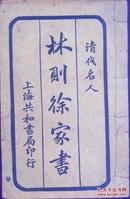 清代名人
林則徐家書
上海共和書局印行